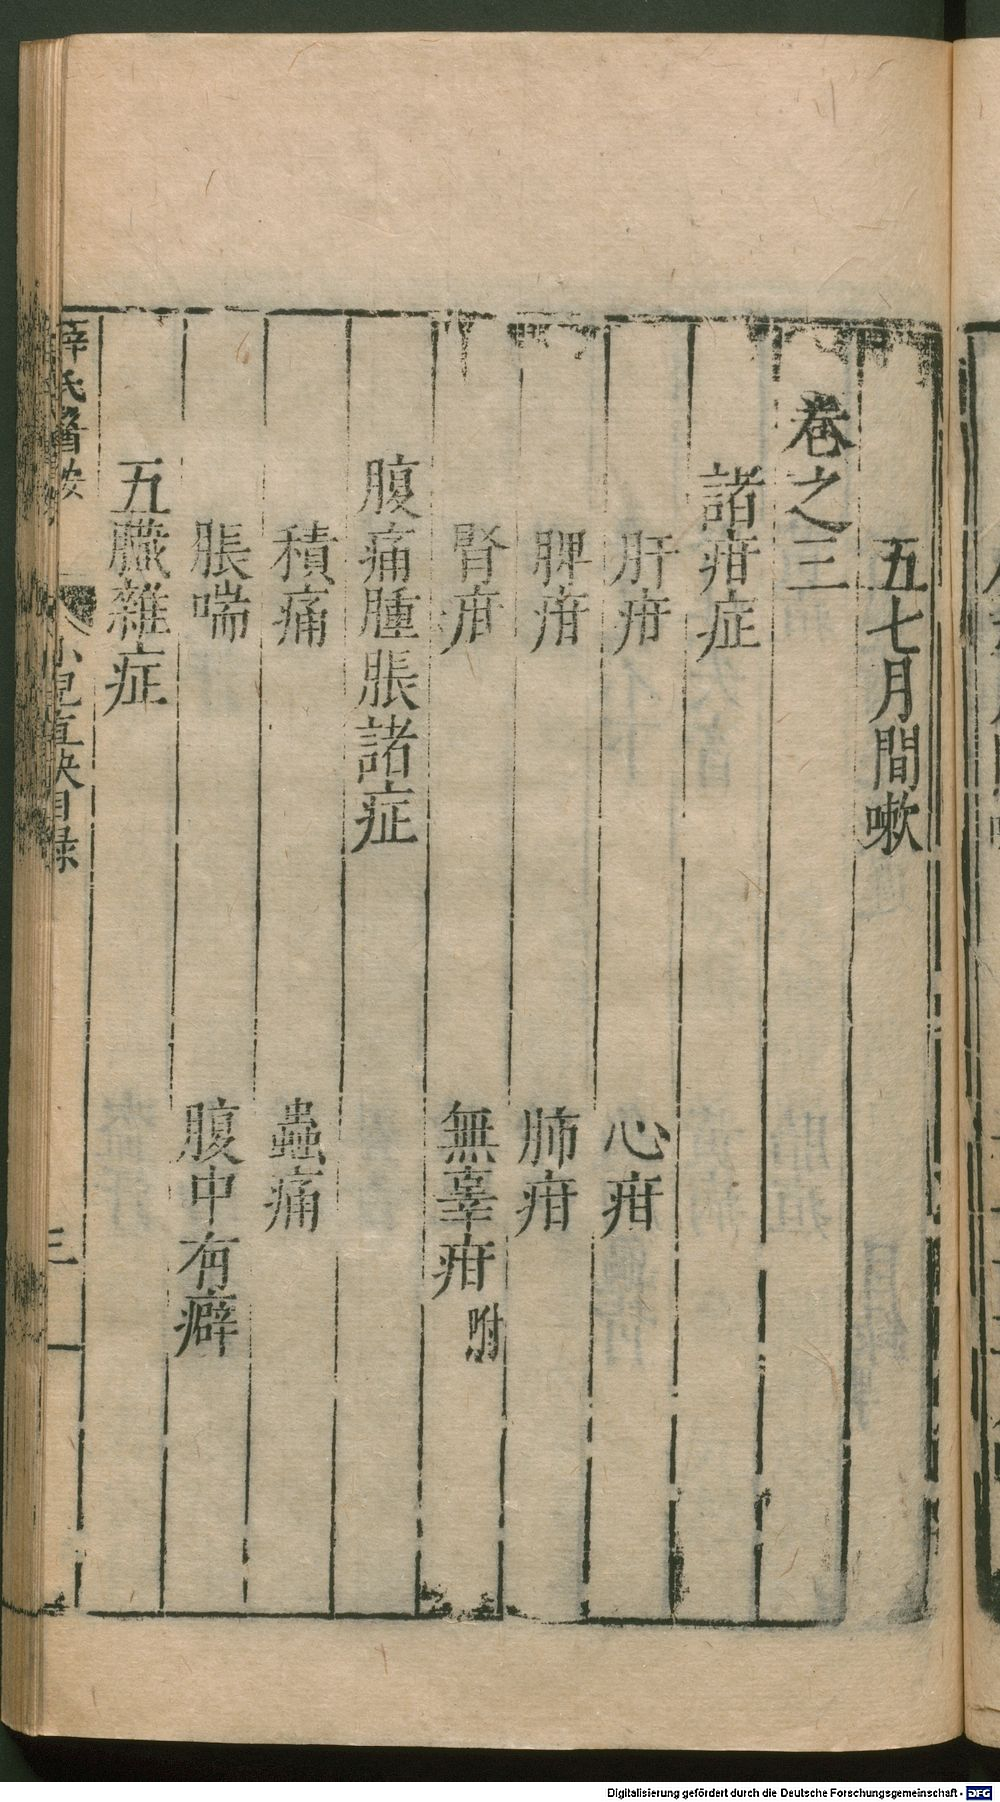 五七月間嗽
卷之三
諸疳症
肝疳 心疳
脾疳 肺疳
腎疳 無辜疳 附
腹痛腫脹諸症
積痛 蟲痛
脹喘 腹中有癖
五臟雜症
薛氏醫按 小兒直決目録 三
Digitalisierung gefördert durch die Deutsche Forschungsgemeinschaft - DFG